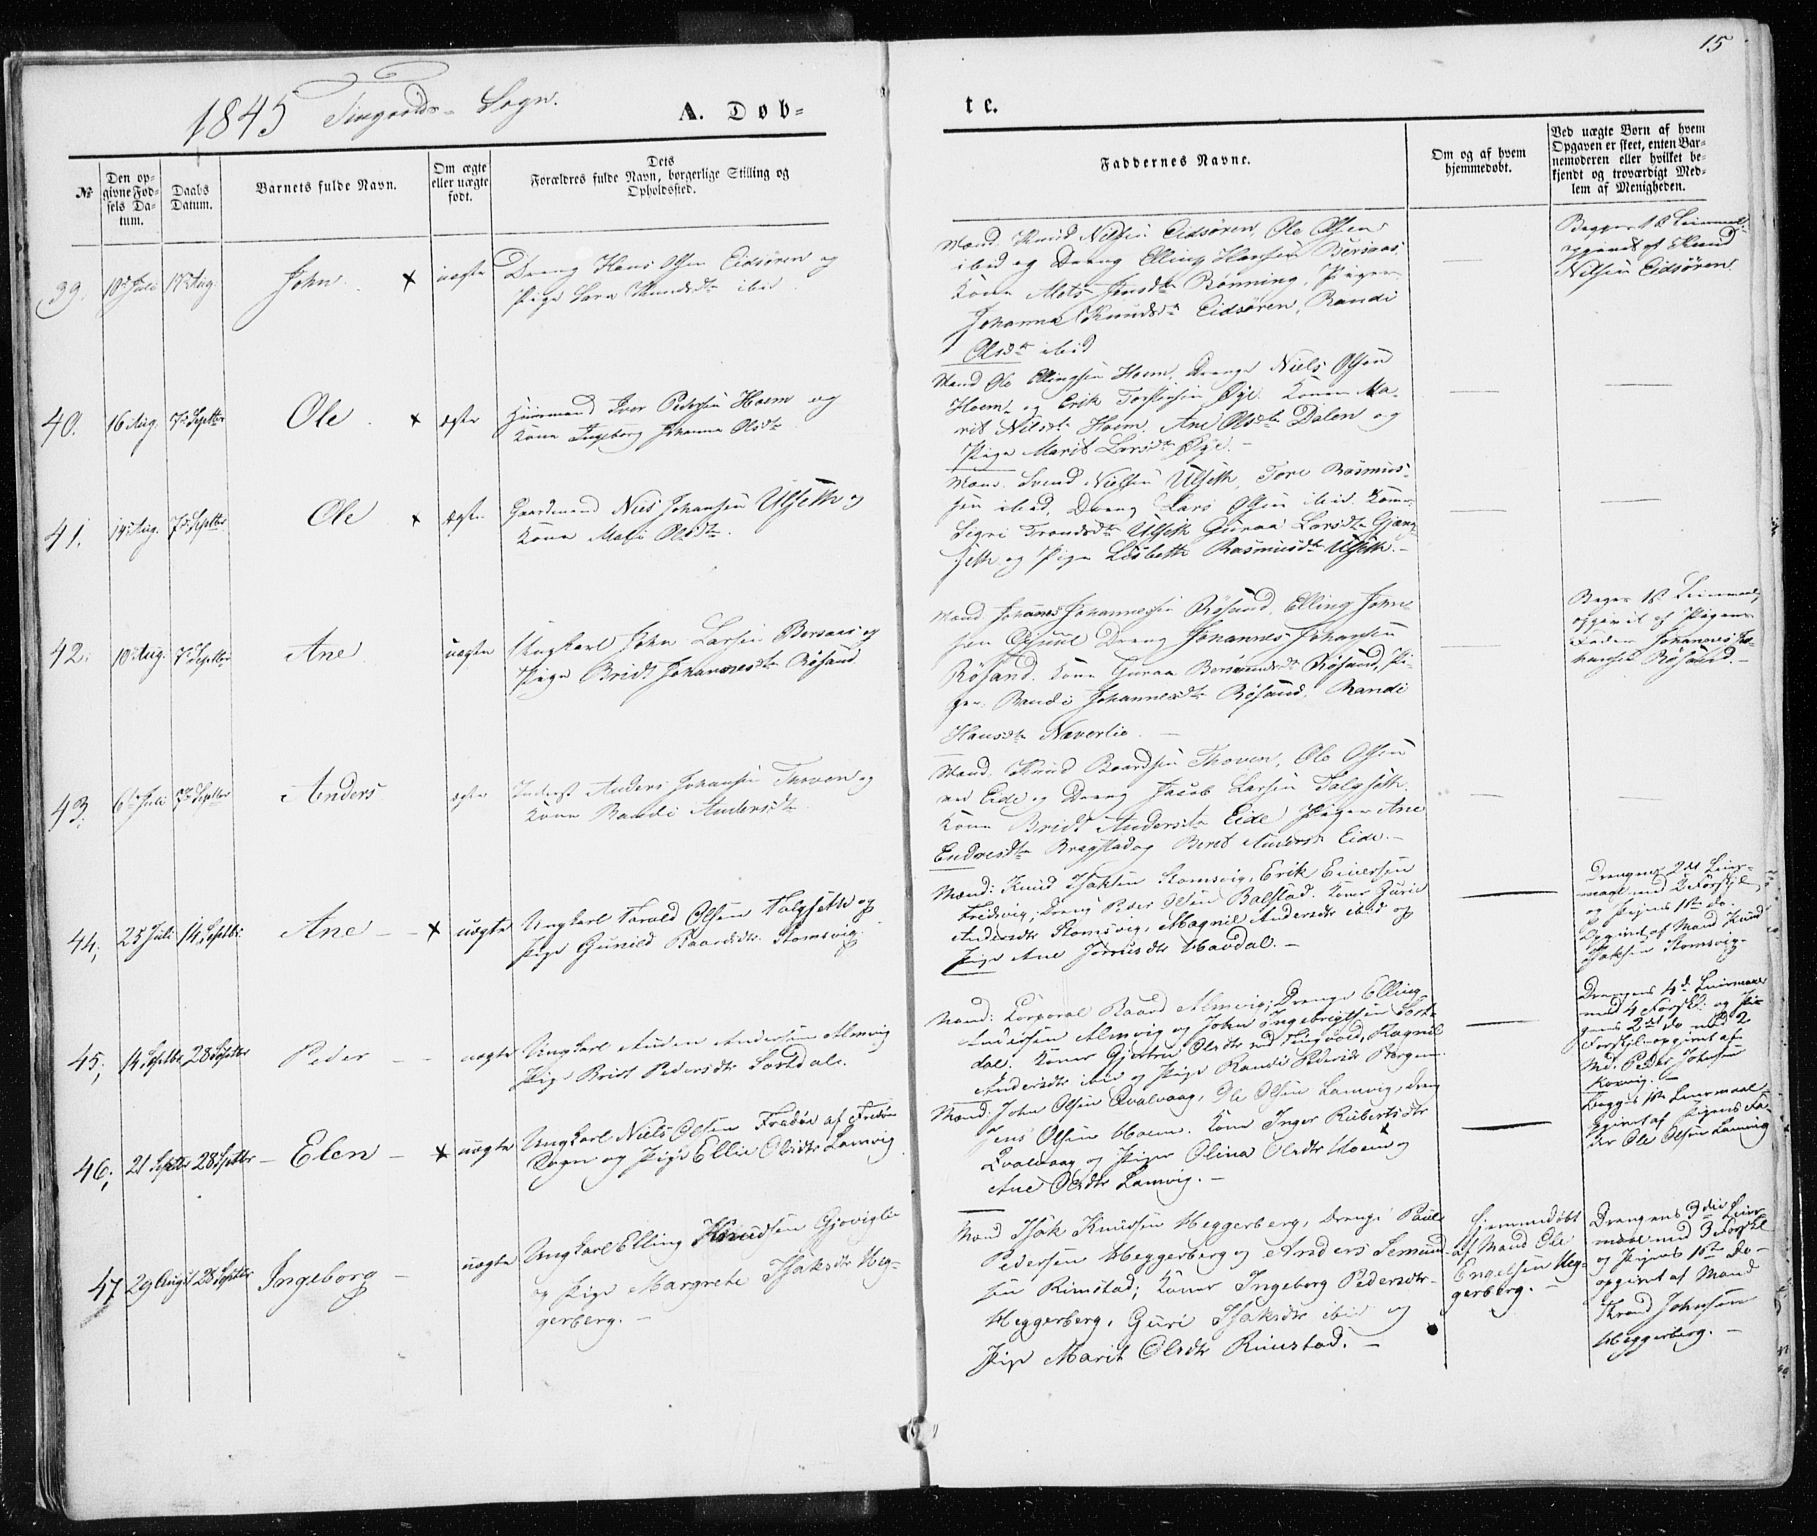 15
1845 Tingvolds Sogn.
A. Døb-
te.
№
Den op-
givne Fød-
sels Da-
tum.
Daabs
Datum.
Barnets fulde Navn.
Om ægte
eller uægte
født.
Dets
Forældres fulde Navn, borgerlige Stilling og
Opholdssted.
Faddernes Navne.
Om og af hvem
hjemmedøbt.
Ved uægte Børn af hvem
Opgaven er skeet, enten Bar-
nemoderen eller hvilket be-
kjendt og troværdigt Med-
lem af Menigheden.
39. 10de Juli 17de Aug. John. x uægte
Dreng Hans Olsen Eidsøren og
Pige Knudsdtr ibid
Mænd Knud Nilsen Eidsøren, Ole Olsen
ibid og Dreng Elling Hansen Bersaas.
Kone Mets Jensdtr Rønning, Piger
Johanna Knudsdtr Eidsøren, Randi
Olsdtr ibid
Begges 1ste Leiermaal
opgivet af Knud
Nilsen Eidsøren
40. 16 Aug. 7de Septbr Ole x ægte
Huusmand Iver Pedersen Hoem og
Kone Ingeborg Johanna Olsdtr
Mænd Ole Ellingsen Hoem, Drenge Niels Olsen
Hoem og Erik Torstensen Øye. Koner Ma-
rit Nilsdtr Hoem, Ane Olsdtr Dalen og
Pige Marit Larsdtr Øye. —
41. 14de Aug. 7de Septbr. Ole x ægte
Gaardmand Niels Johansen Ulseth og
Kone Mali Olsdtr.
Mænd Svend Nielsen Ulseth, Tore Rasmus-
sen ibid, Dreng Lars Olsen ibid. Koner
Sigri Trondsdtr Ulseth Guraa Larsdtr Gjeng-
seth og Pige Lisbeth Rasmusdtr Ulseth. —
42. 10de Aug. 7de Septbr Ane uægte
Ungkarl John Larsen Bersaas og
Pige Brit Johannesdtr Røsand.
Mænd Johannes Johannessen Røsand, Elling John-
sen Dreng Johannes Johansen
Røsand. Kone Guraa Røsand, Pi-
ger Randi Johannesdtr Røsand, Randi
Hansdtr Næverlie. —
Begges 1ste Leiermaal
opgivet af Pigens
Fader Johannes Jo-
hansen Røsand. —
43. 6te Juli 7de Septbr Anders ægte
Inderst Anders Johansen Thoven og
Kone Randi Andersdtr
Mænd Knud Baardsen Thoven, Ole Olsen
ved Eide og Dreng Jacob Larsen Talgseth.
Kone Brit Andersdtr Eide Piger Ane
Endresdtr Bragstad og Beret Andersdtr Eide. —
44, 25 Juli 14, Septbr Ane — x uægte
Ungkarl Farald Olsen Talgsethe og
Pige Gunild Baardsdtr. Stomsvig.
Mænd: Knud Isaksen Stomsvig, Erik Eivensen
Fredsvig, Dreng Peder Olsen Balstad. Koner Guri
Andersdtr Stomsvig, Magnil Andersdtr ibid og
Pige Ane Jonnsdtr Havdal. —
Drengens 2det Leier-
maal med 2 Forskjl
og Pigens 1ste do.
Opgivet af Mand Knud
Isaksen Stomsvig.
45, 14, Septbr 28 Septbr Peder — uægte
Ungkarl Auden Andersen Almvig
Pige Brit Pedersdtr Sortdal.
Mænd: Corporal Baard Almvig; Drenge Elling
Andersen Almvig og John Ingebrigtsen Sort-
dal. Koner Gjertru Olsdtr ved Tingvold, Magnil
Andersdtr ibid og Pige Randi Pedersdtr Bergem.
Drengens 4de Leiermaal
med 4 Forskl: og Pi-
gens 2det do med 2
Forskjl opgivet af
Md. Peder Johnsen
Korsvig. —
46, 21 Septbr 28 Septbr — Elen — x uægte
Ungkarl Niels Olsen Fredøe af Fredøe
Sogn og Pige Ellie Olsdtr Lamvig
Mænd: John Olsen Qvalvaag, Ole Olsen Lamvig, Dreng
Jens Olsen Hoem. Kone Inger Rubertsdtr
Qvalvaag og Piger Olina Olsdtr Hoem og
Ane Olsdtr Lamvig. —
Begges 1ste Leiermaal
Opgivet af Pigens Fa-
der Ole Olsen Lamvig
47 29 Augst 28 Septbr Ingeborg — uægte
Ungkarl Elling Knudsen Gjøviglie
og Pige Margrete Isaksdtr Heg-
gerberg. —
Mænd Isak Knudsen Heggerberg, Drenge Paul
Pedersen Heggerberg og Anders Semund-
sen Rimstad; Koner Ingeborg Pedersdtr
Heggerberg, Guri Isaksdtr ibid og
Pige Marit Olsdtr Rimstad. —
Hjemmedøbt
af Mand Ole
Engelsen Heg-
gerberg. —
Drengens 3die Leier-
maal med 3 Forskl
og Pigens 1ste do —
opgivet af Mand
Trond Johnsen
Heggerberg. —